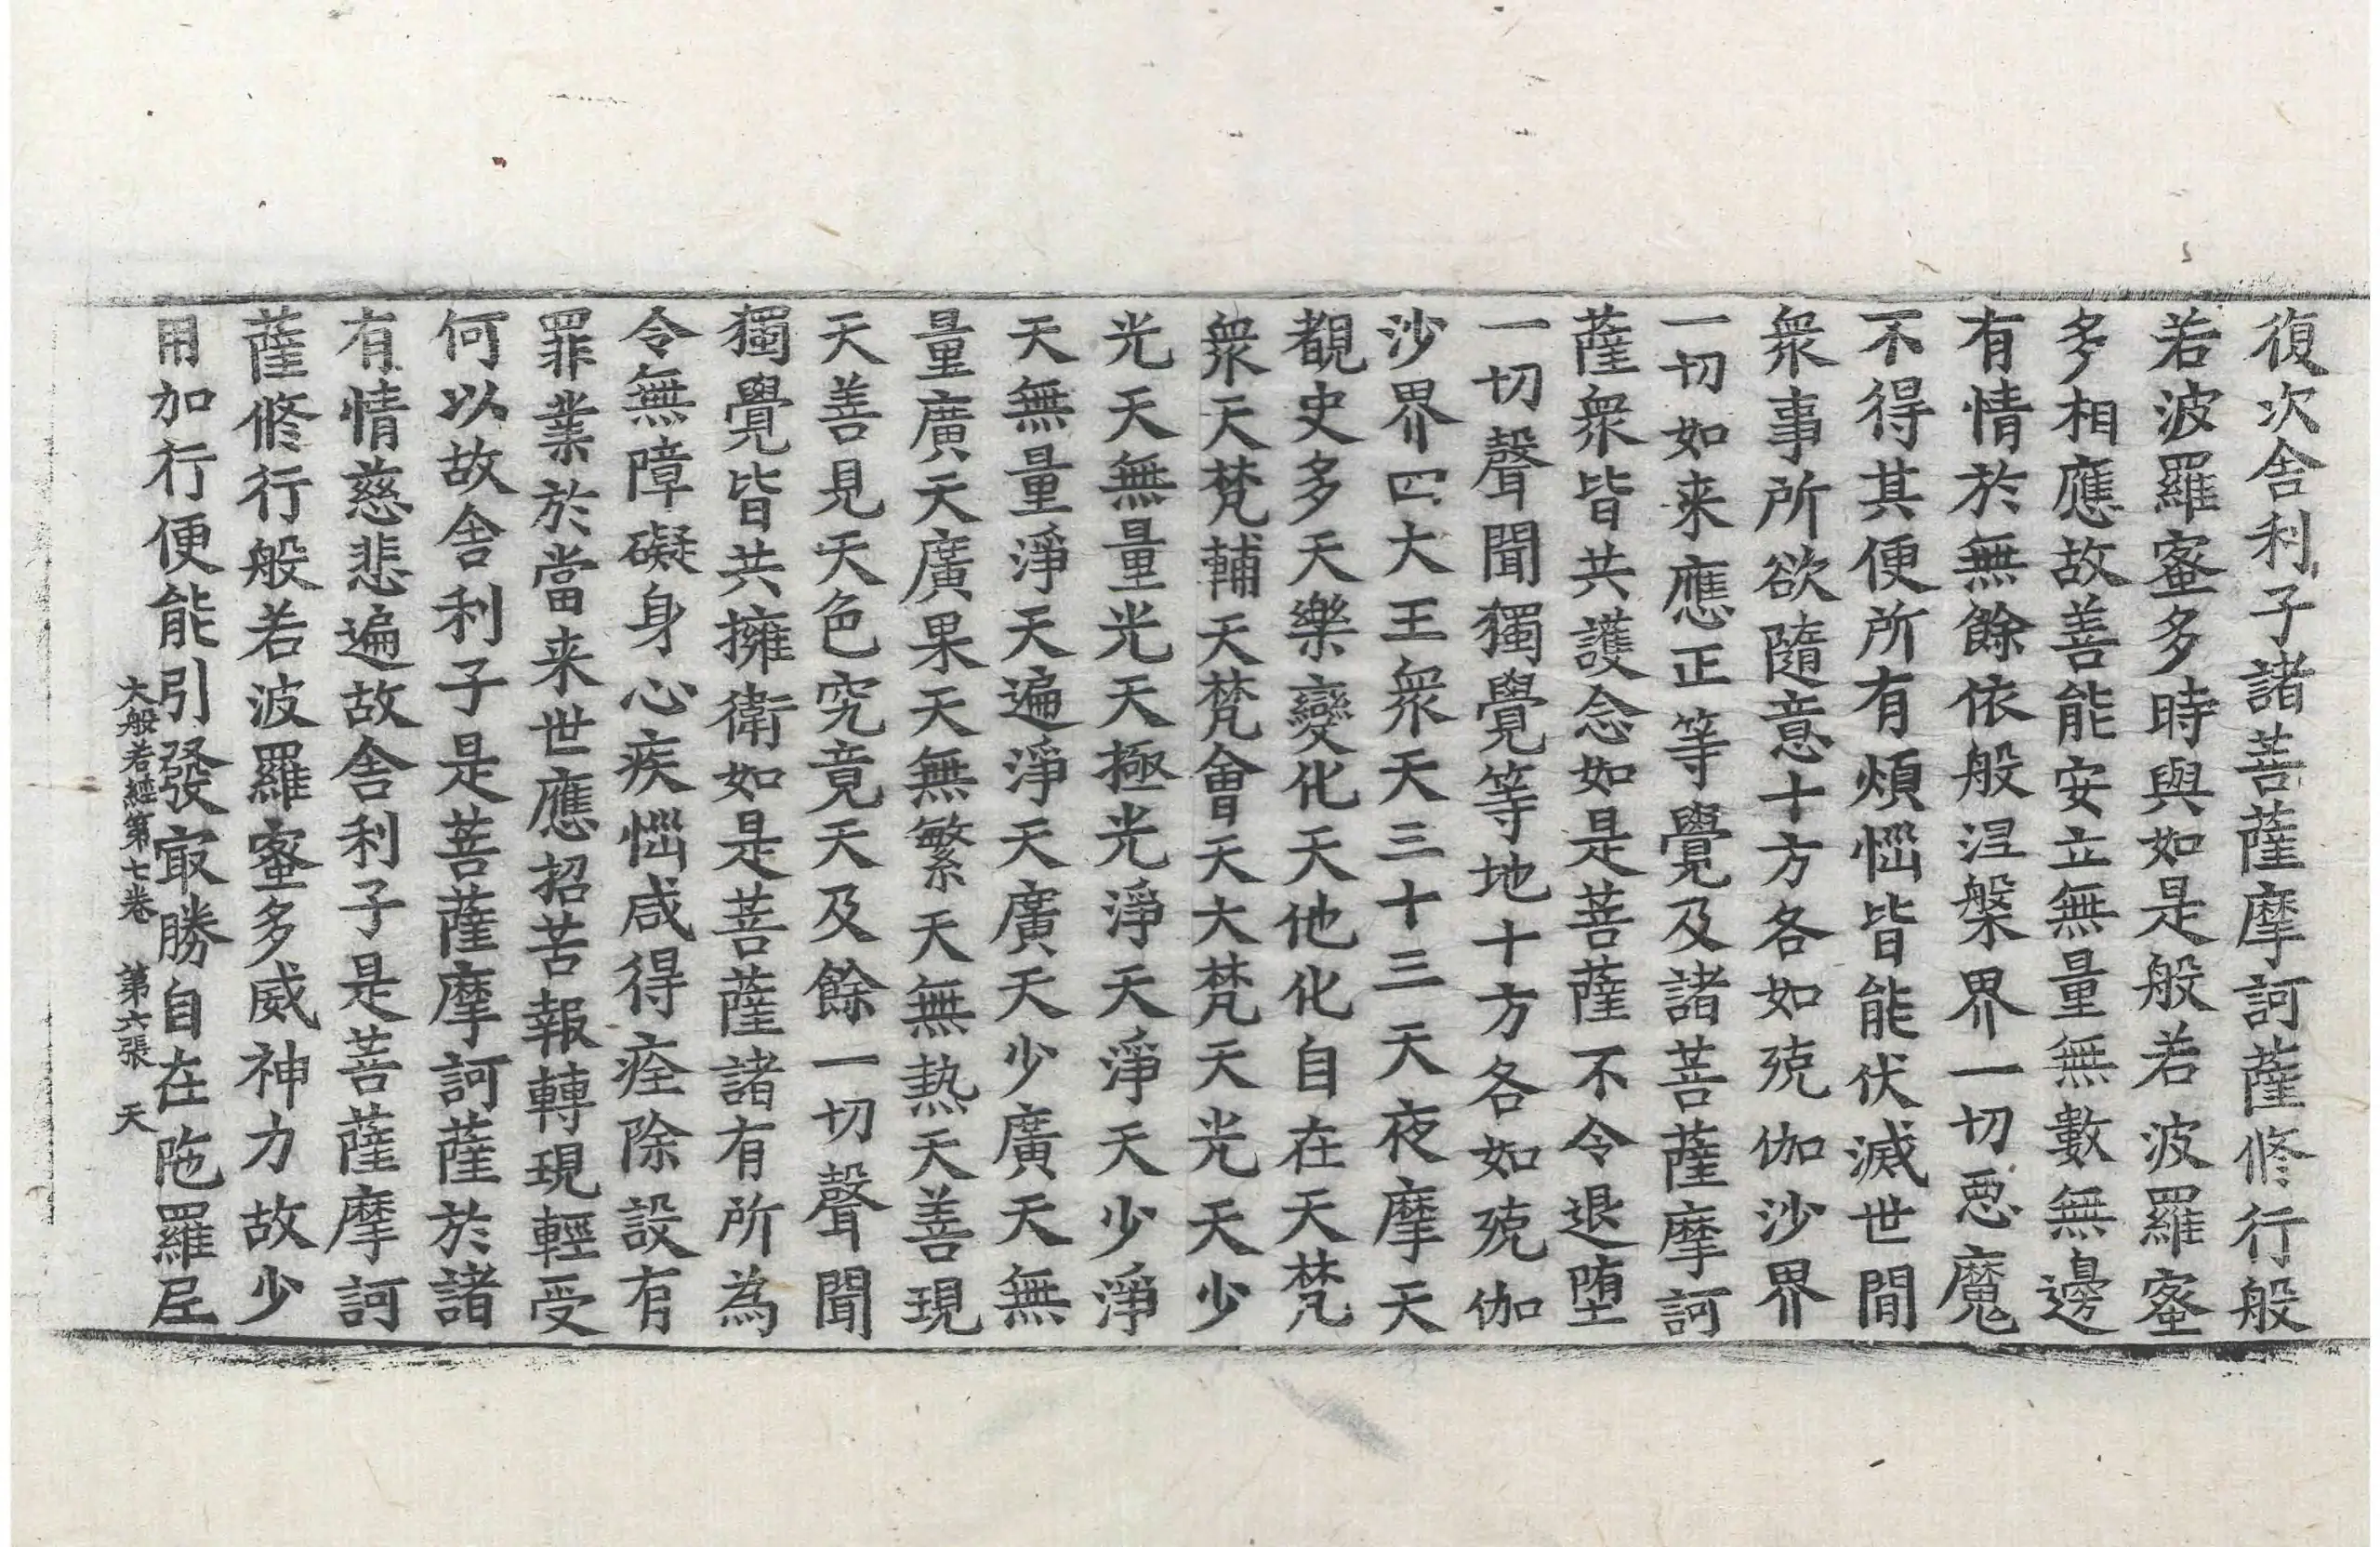 復次舍利子諸菩薩摩訶薩修行般
若波羅蜜多時與如是般若波羅蜜
多相應故善能安立無量無數無邊
有情於無餘依般涅槃界一切惡魔
不得其便所有煩惱皆能伏滅世間
衆事所欲隨意十方各如殑伽沙界
一切如来應正等覺及諸菩薩摩訶
薩衆皆共護念如是菩薩不令退墮
一切聲聞獨覺等地十方各如殑伽
沙界四大王衆天三十三天夜摩天
覩史多天樂變化天他化自在天梵
衆天梵輔天梵會天大梵天光天少
光天無量光天極光淨天淨天少淨
天無量淨天遍淨天廣天少廣天無
量廣天廣果天無繁天無熱天善現
天善見天色究竟天及餘一切聲聞
獨覺皆共擁衛如是菩薩諸有所為
令無障礙身心疾惱咸得痊除設有
罪業於當来世應招苦報轉現輕受
何以故舍利子是菩薩摩訶薩於諸
有情慈悲遍故舍利子是菩薩摩訶
薩修行般若波羅蜜多威神力故少
用加行便能引發㝡勝自在陁羅尼
大般若經第七卷 第六張 天